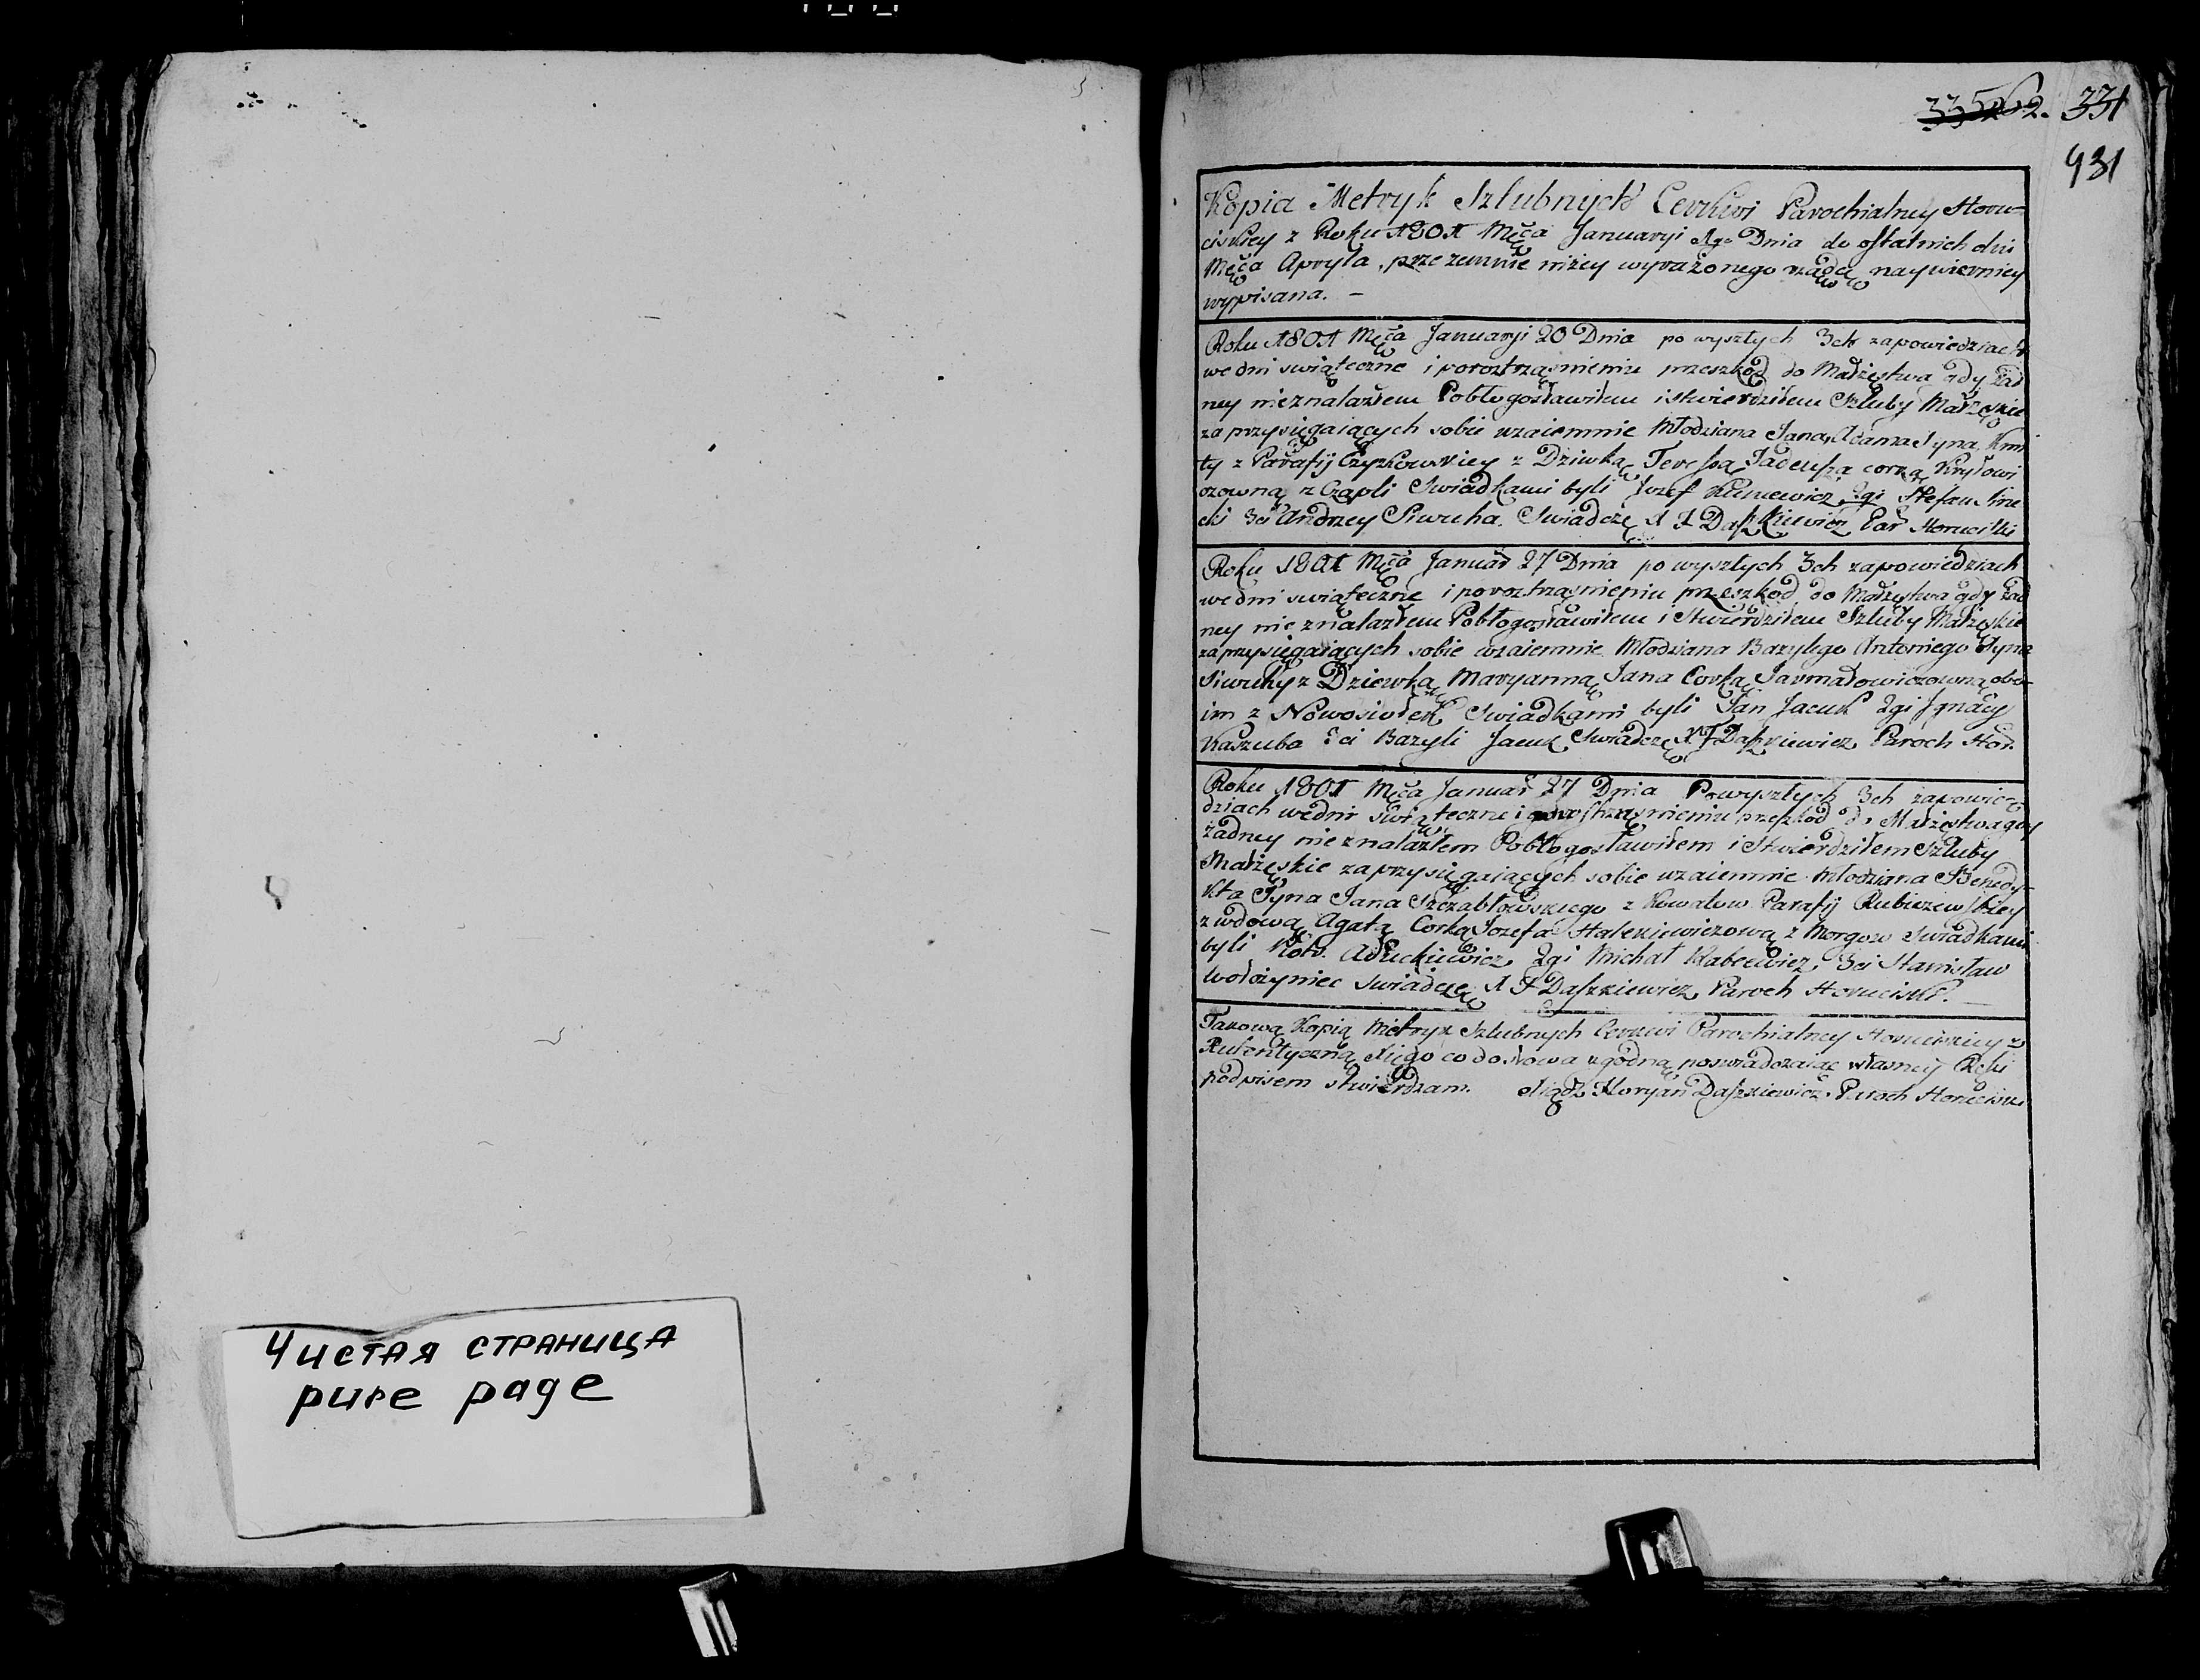 Чистая страница
pure page
331
931
Kopia Metryk Szlubnych Cerkwi Parochialney Horu-
ciskiey z Roku 1801 Mca Januaryi 1go Dnia do ostatnich dni
Mca Apryla, przezemnie niżey wyrażonego naywierniey
wypisana. —
Roku 1801 Mca Januaryi 20 Dnia po wyszłych 3ch zapowiedziach
we dni swiąteczne i poroztrząsnieniu przeszkod do Małżęstwa gdy żad
ney nieznalazłem Pobłogosławiłem i stwierdziłem Szluby Małżęskie
zaprzysięgaiących sobie wzaiemnie Młodziana Jana Adama Syna Kmi
ty z Parafij z Dziwką Teressą Tadeusza corką
z Czapli Swiadkami byli Jozef 2gi Stefan
3ci Andrzey Siwucha. Swiadczę X F Daszkiewicz Par
Roku 1801 Mca Januar 27 Dnia po wyszłych 3ch zapowiedziach
we dni swiąteczne i poroztrząsnieniu przeszkod do Małżęstwa gdy żad
ney nie znalazłem Pobłogosławiłem i Stwierdziłem Szluby Małżęskie
zaprzysięgaiących sobie wzaiemnie Młodziana Bazylego Antoniego Syna
Siwuchy z Dziewką Maryanną Jana Corką Jarmałowiczowną obo-
im z Nowosiołek Swiadkami byli Jan Jacuk 2gi Jgnacy
Kaszuba 3ci Bazyli Jacuk Swiadczę X F Daszkiewicz Paroch Hor.
Roku 1801 Mca Januar 27 Dnia Powyszłych 3ch zapowie-
dziach wedni swiąteczne i przeszkod do Małżęstwa gdy
żadney nie znalazłem Pobłogosławiłem i Stwierdziłem Szluby
Małżęskie zaprzysięgaiących sobie wzaiemnie Młodziana Benedy-
kta Syna Jana Szczabłowskiego z Kowalow Parafij Rubieżewskiey
z wdową Agatą Corką Jozefa Halekiewiczową z Morgow Swiadkami
byli Piotr 2gi Michał 3ci Stanisław
Wołożyniec Swiadczę X F Daszkiewicz Paroch
Takową Kopią Metryk Szlubnych Cerkwi Parochialney z
Autentyczną co do słowa zgodną poswiadczaiąc własney Ręki
podpisem stwierdzam. Xiądz Floryan Daszkiewicz Paroch